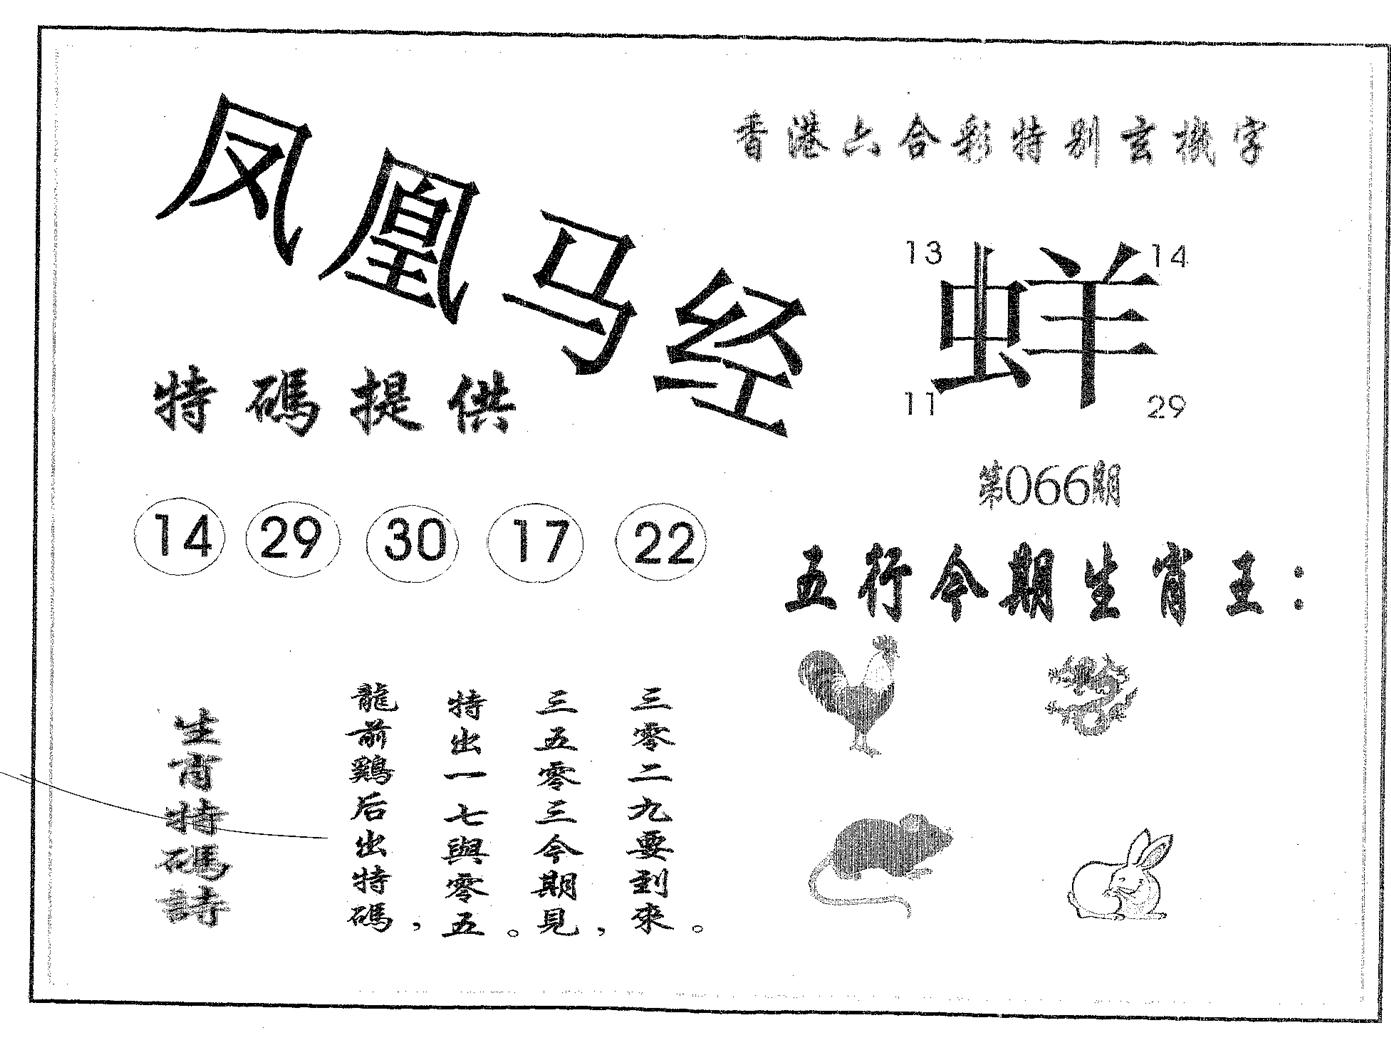 凤凰马经
香港六合彩特别玄機字
13 14
蛘
11 29
第066期
特碼提供
14 29 30 17 22
五行今期生肖王：
生肖特碼詩
龍前鷄后出特碼，
特出一七與零五。
三五零三今期見，
三零二九要到來。